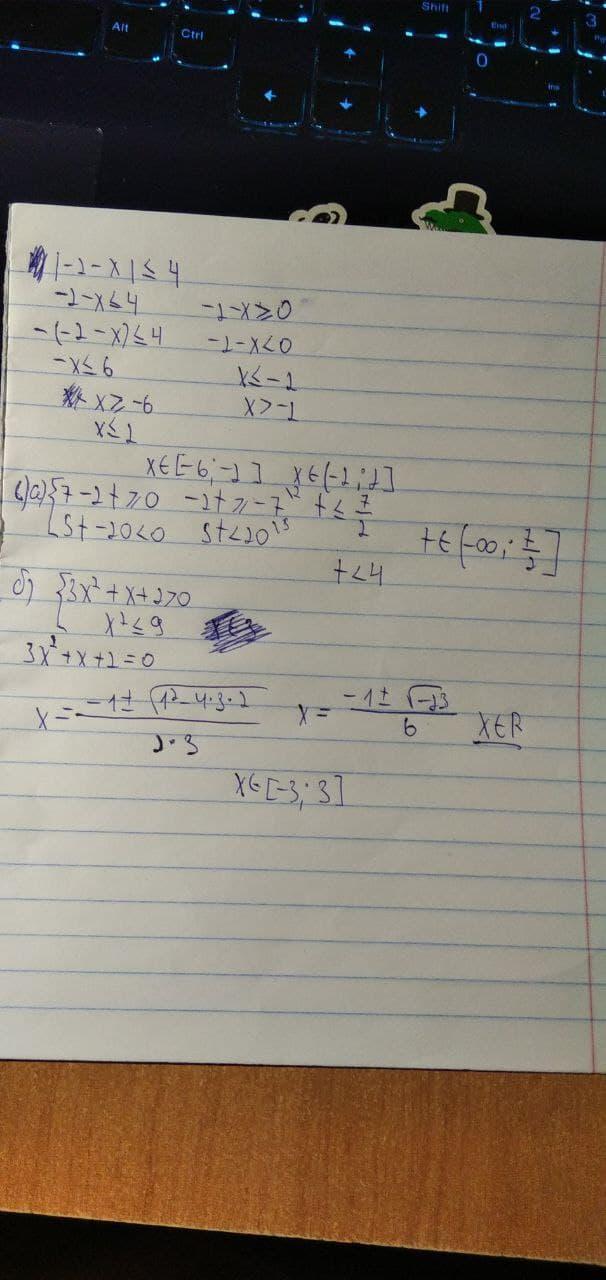 Shift
1
End
2
3
Alt
Ctrl
0
Ins
|-2-x| ≤ 4
-2-x≤4 -2-x≥0
-(-2-x)≤4 -2-x<0
-x≤6 x≤-2
x≥-6 x>-2
x≤2
x∈[-6;-2] x∈(-2;2]
в)а){7-2t≥0 -2t≥-7 |:2 t≤7/2 t∈(-∞;7/2]
5t-20<0 5t<20 |:5
t<4
б) {3x²+x+2>0
x²≤9
3x²+x+2=0
x= (-1±√(1²-4·3·2))/(2·3) x= (-1±√-23)/6 x∈R
x∈[-3;3]